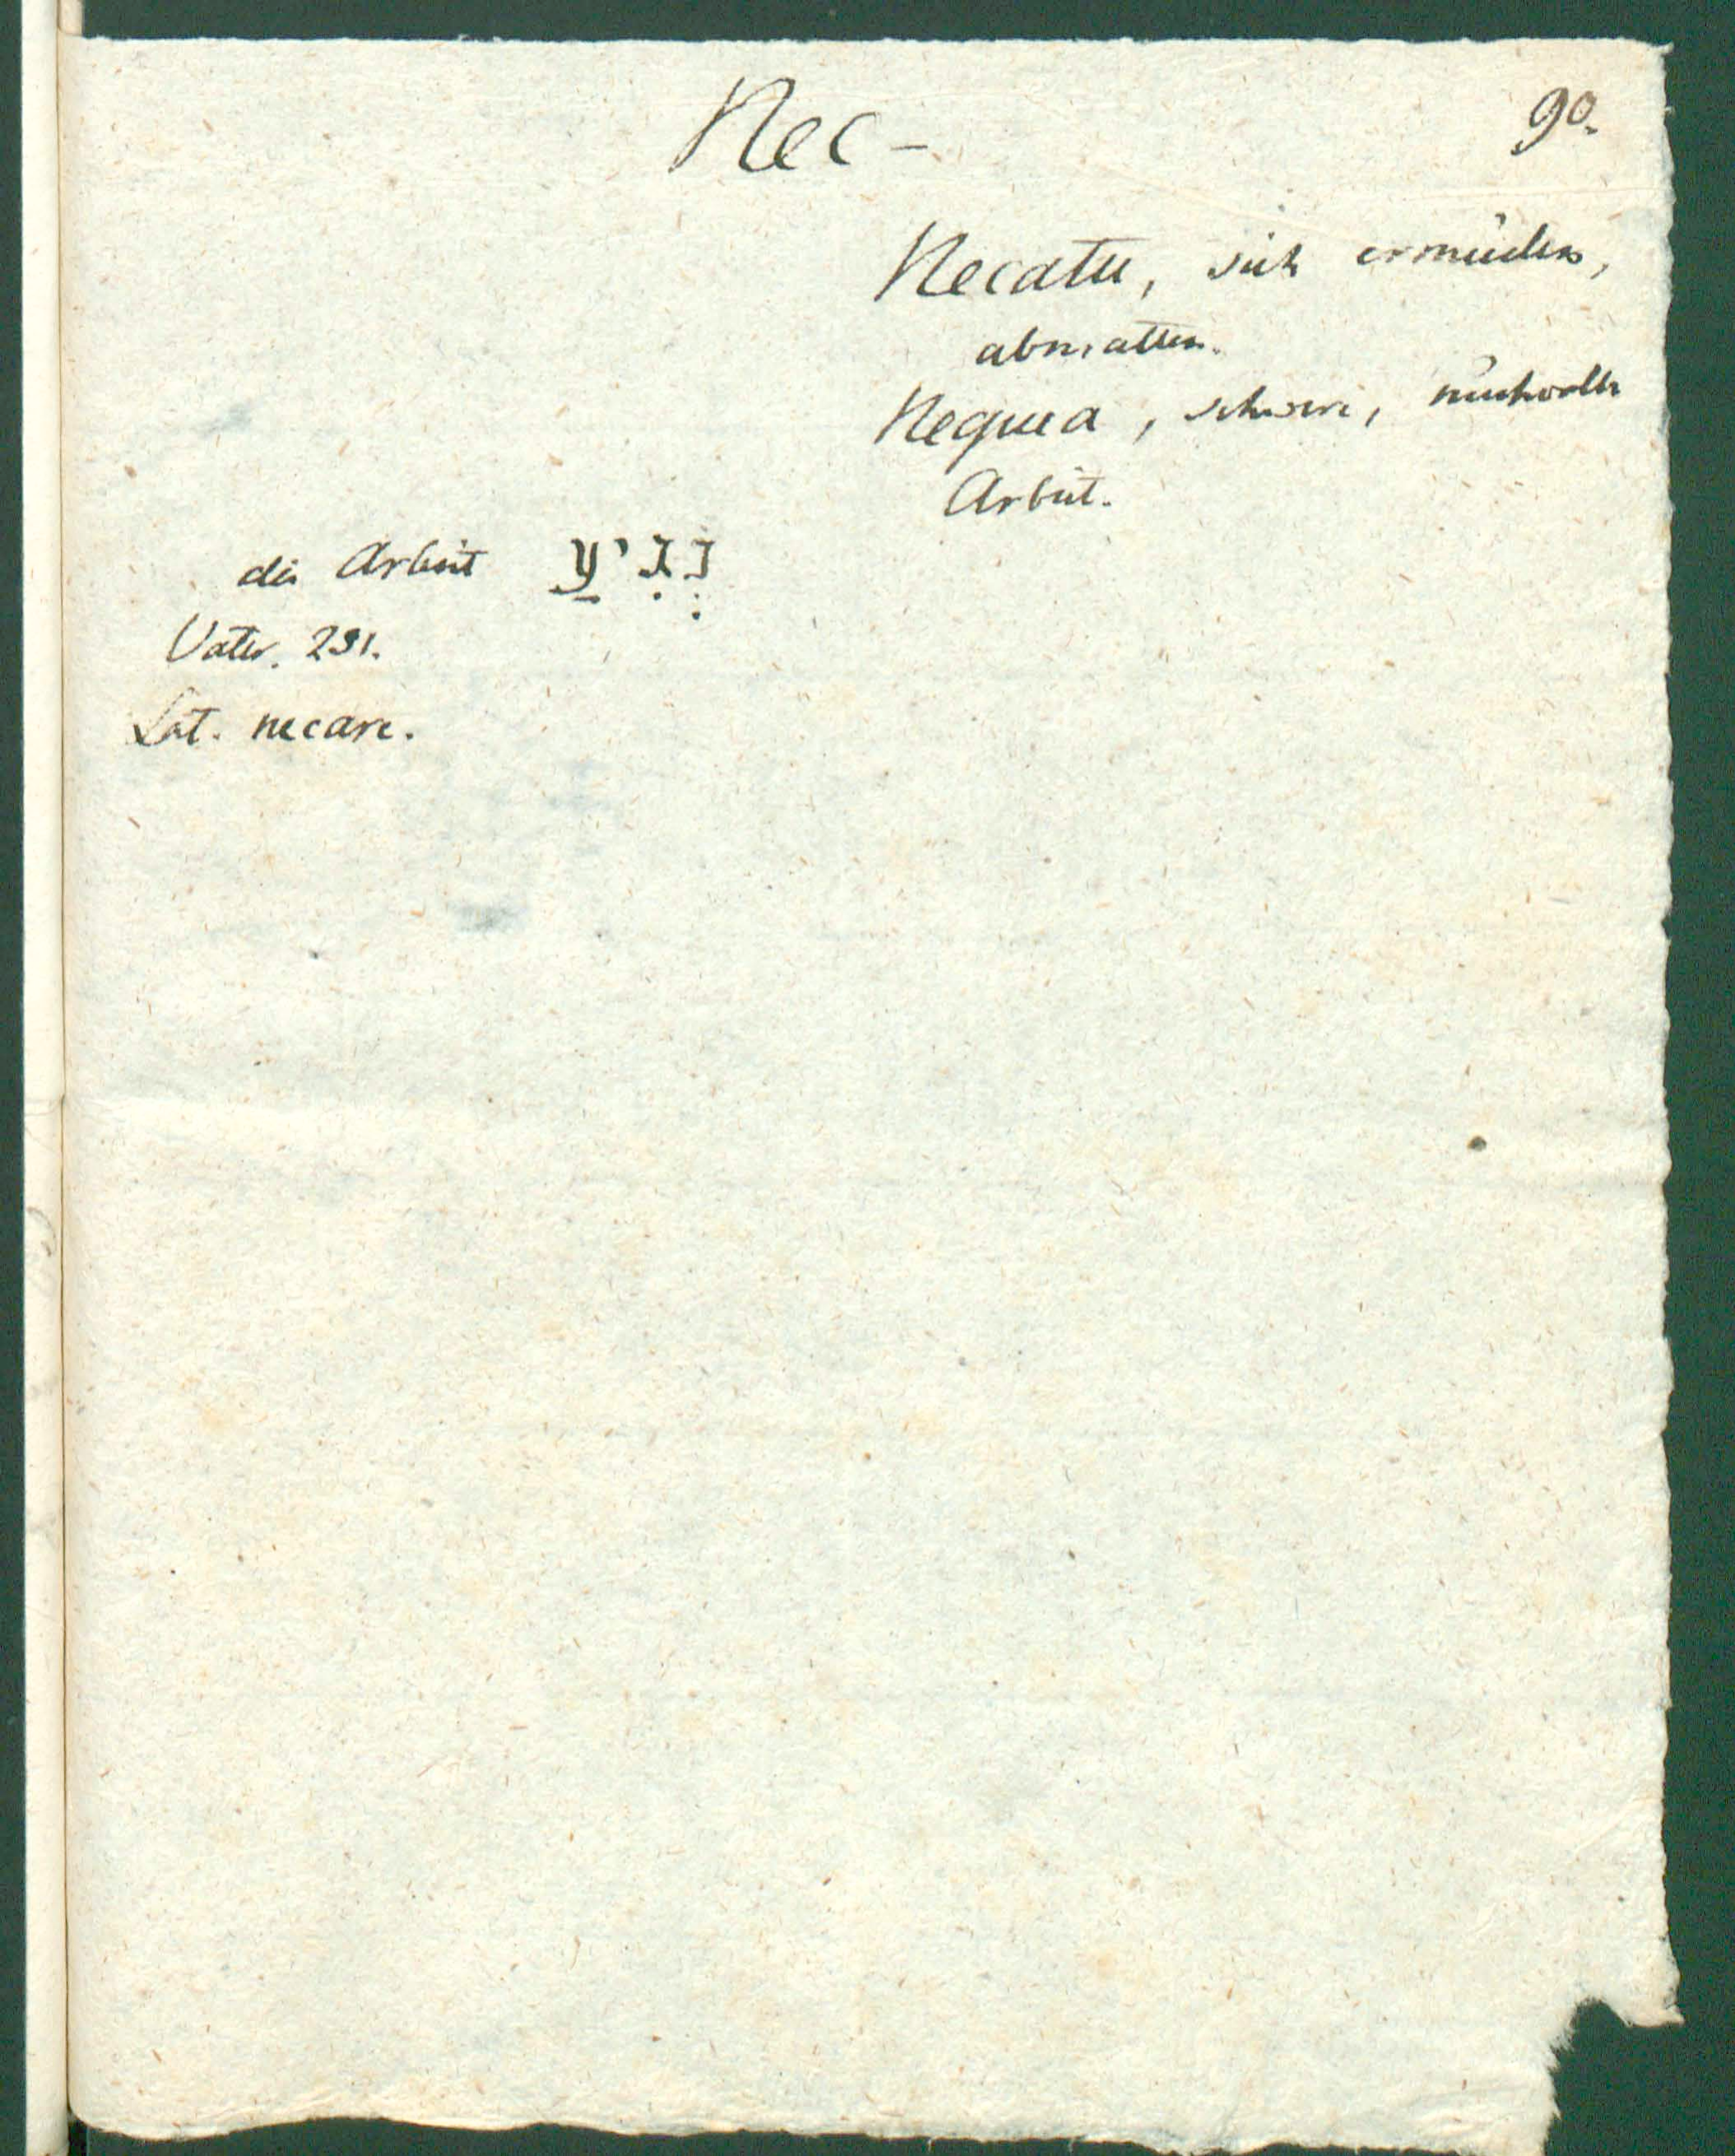 Nec-
90.
Necatu, sich ermüden,
abmatten.
Nequea, schwere, mühvolle
Arbeit.
die Arbeit יְגִיעַ
Vater. 291.
Lat. necare.